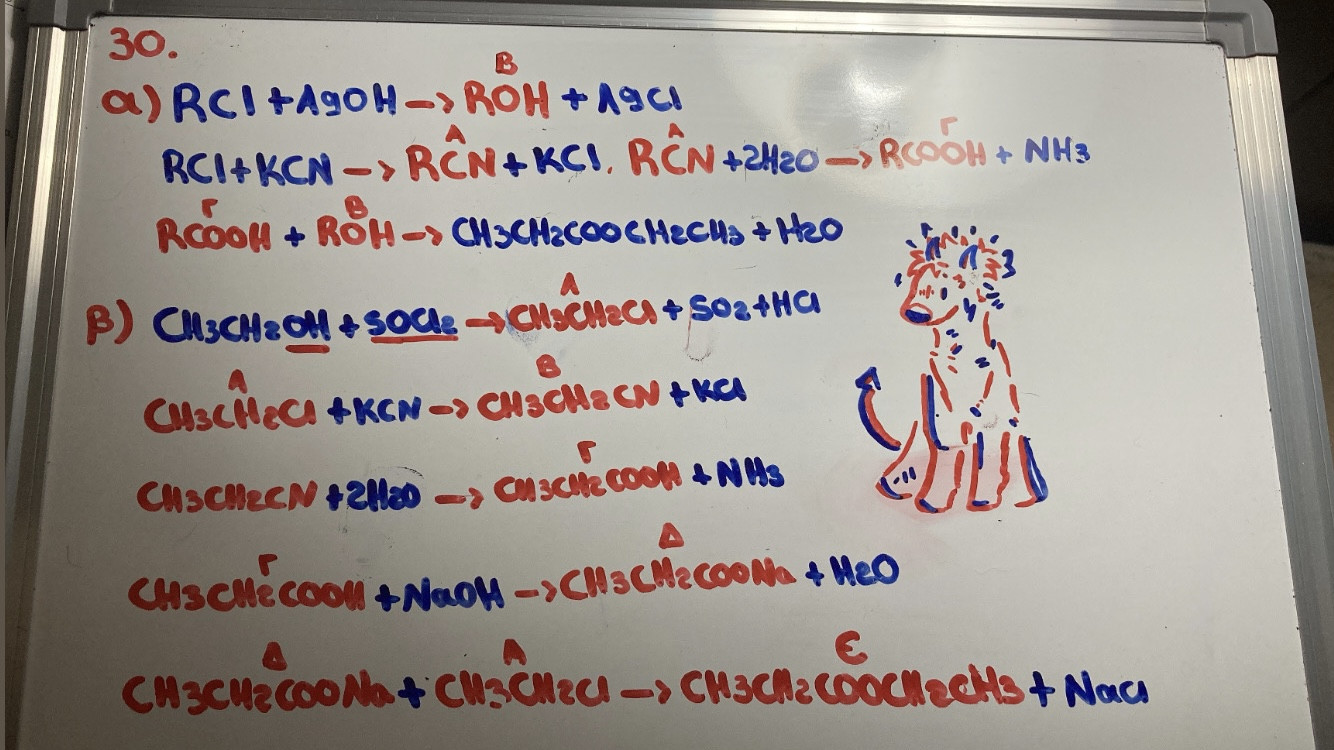 30.
B
α) RCl + AgOH –> ROH + AgCl
A A Γ
RCl + KCN –> RCN + KCl. RCN + 2H2O –> RCOOH + NH3
Γ B
RCOOH + ROH –> CH3CH2COOCH2CH3 + H2O
A
β) CH3CH2OH + SOCl2 –> CH3CH2Cl + SO2 + HCl
A B
CH3CH2Cl + KCN –> CH3CH2CN + KCl
Γ
CH3CH2CN + 2H2O –> CH3CH2COOH + NH3
Γ Δ
CH3CH2COOH + NaOH –> CH3CH2COONa + H2O
Δ A E
CH3CH2COONa + CH3CH2Cl –> CH3CH2COOCH2CH3 + NaCl